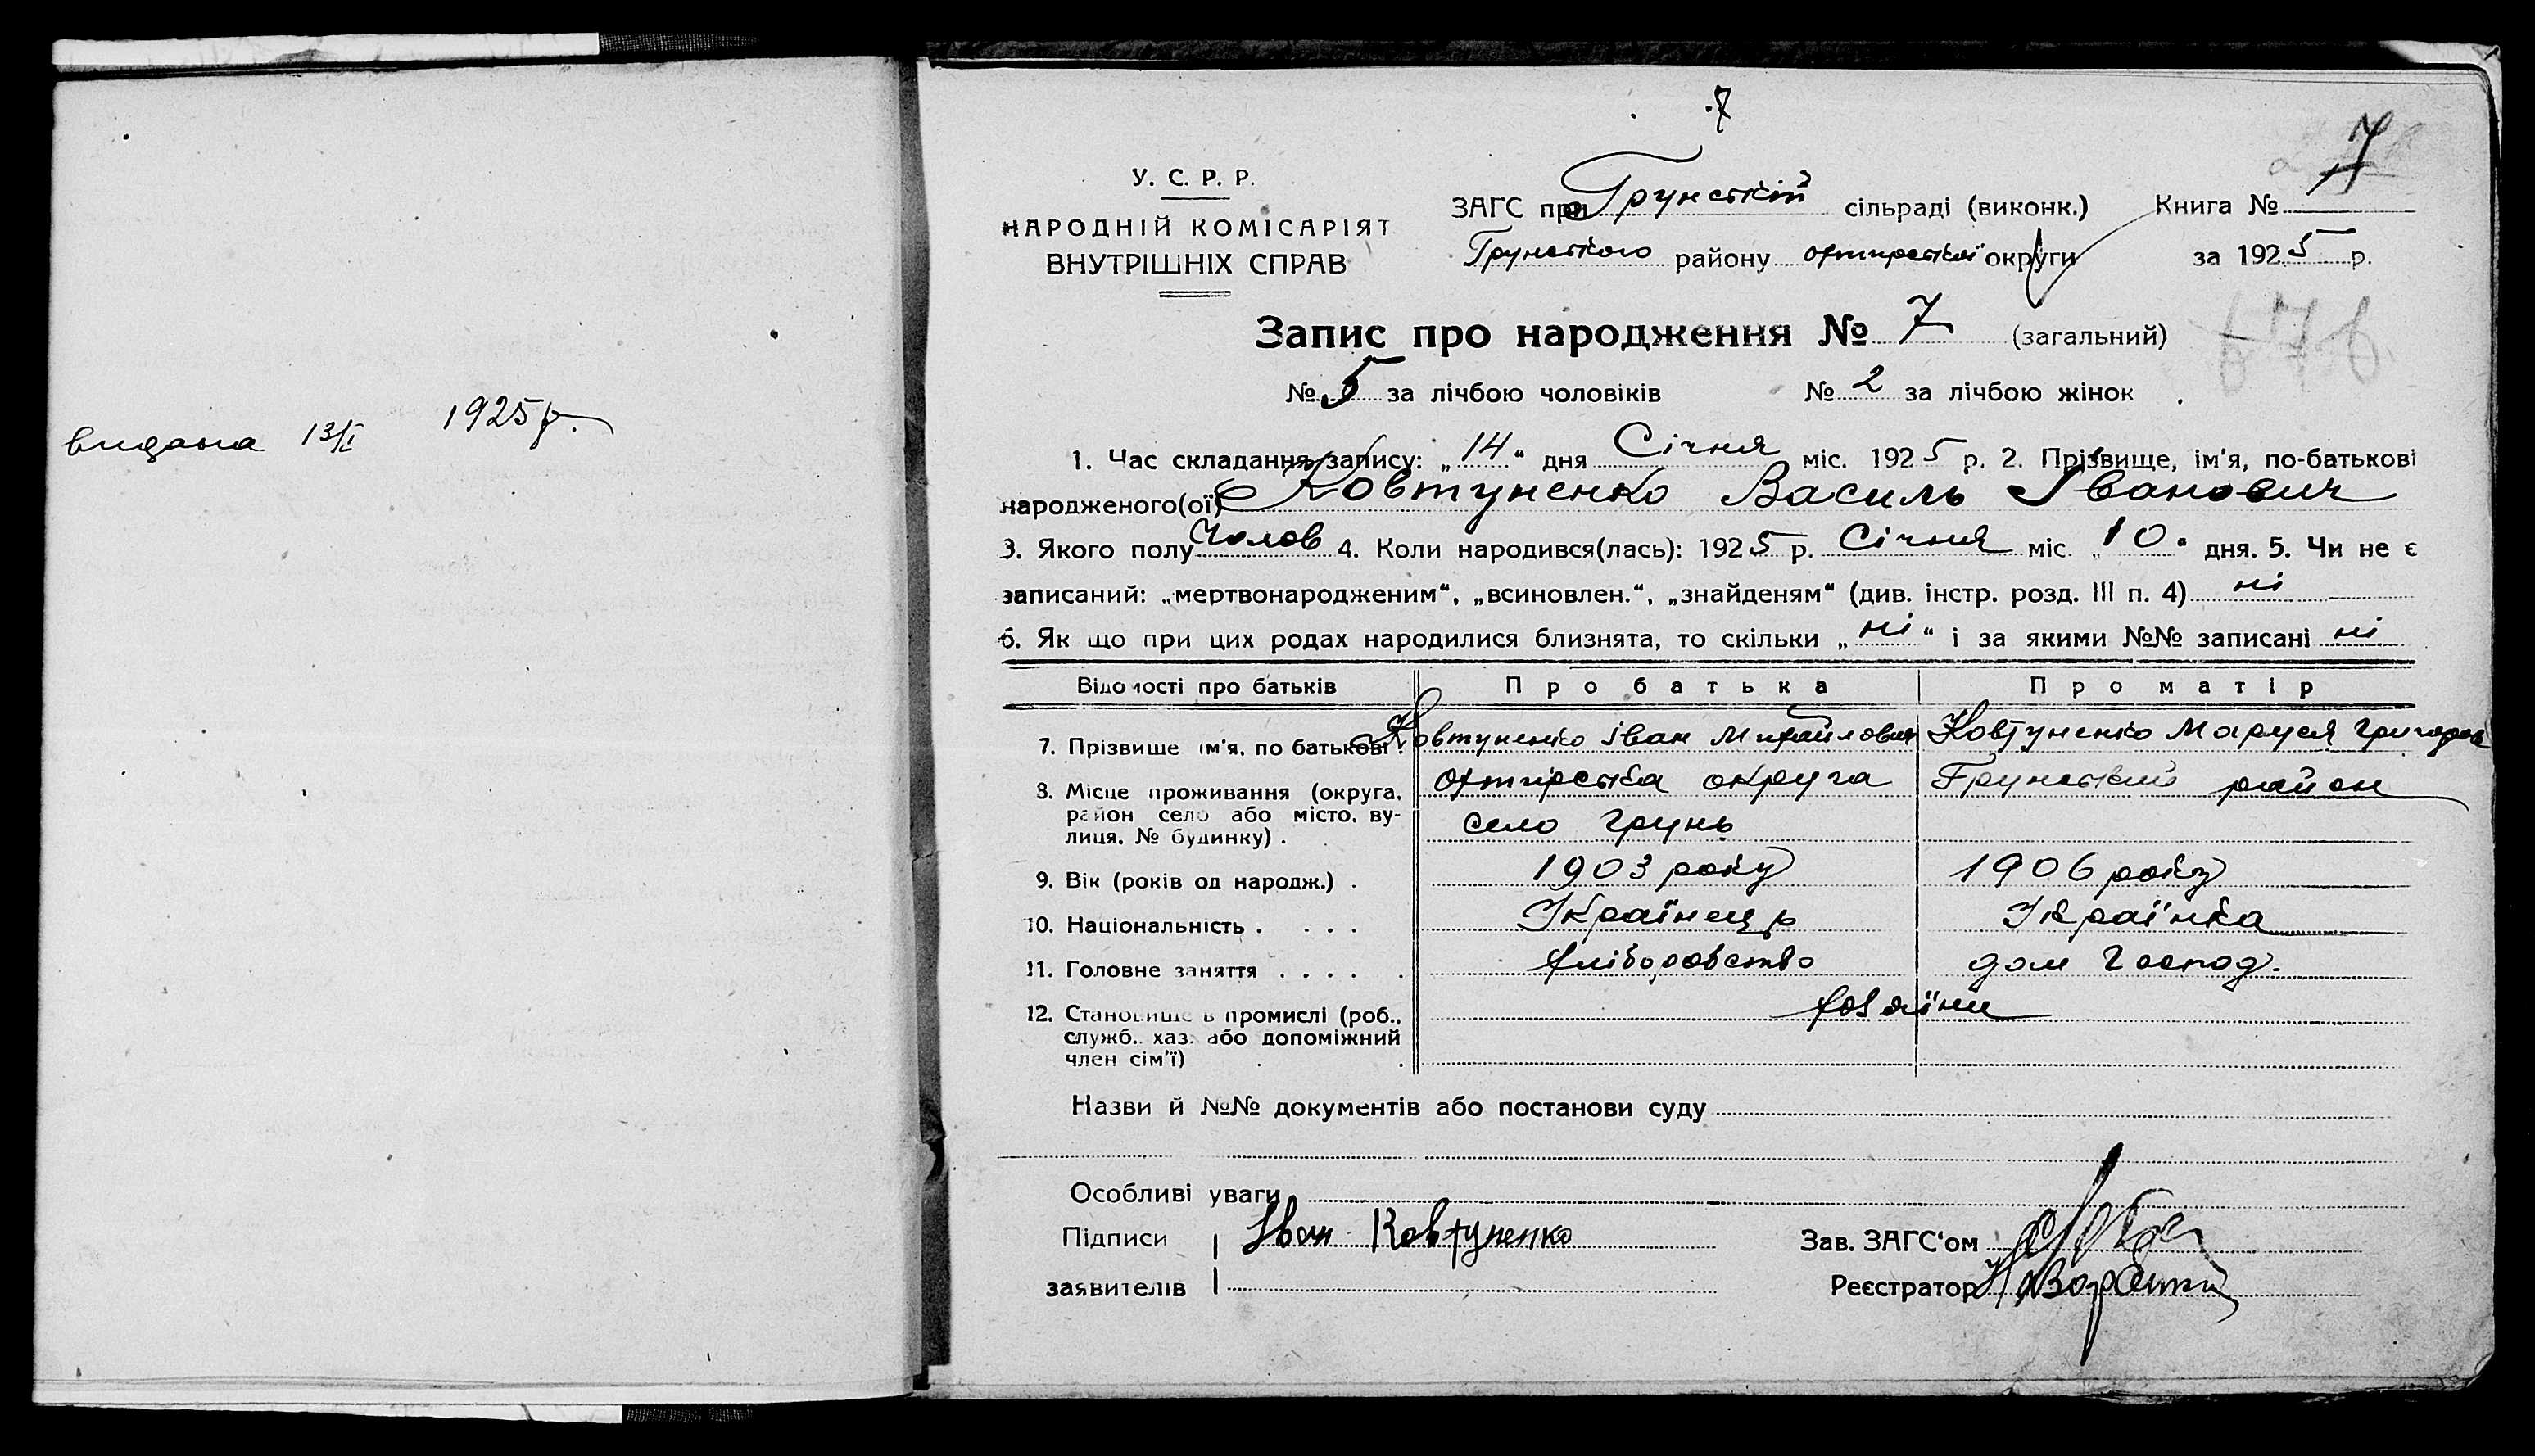 видана 13/I 1925 р.
7
У. С. Р. Р.
НАРОДНІЙ КОМІСАРІЯТ
ВНУТРІШНІХ СПРАВ
ЗАГС при Грунській сільраді (виконк.) Книга № 7
Грунського району Охтирської округи за 1925 р.
Запис про народження № 7 (загальний)
№ 5 за лічбою чоловіків № 2 за лічбою жінок
1. Час складання запису: „14" дня Січня міс. 1925 р. 2. Прізвище, ім'я, по-батькові
народженого(ої) Ковтуненко Василь Іванович
3. Якого полу Чолов 4. Коли народився(лась): 1925 р. Січня міс. „10" дня. 5. Чи не є
записаний: „мертвонародженим", „всиновлен.", „знайденям" (див. інстр. розд. III п. 4) ні
6. Як що при цих родах народилися близнята, то скільки „ні" і за якими №№ записані ні
Відомості про батьків Про батька Про матір
7. Прізвище ім'я, по батькові Ковтуненко Іван Михайлович Ковтуненко Маруся Григоров
8. Місце проживання (округа, район село або місто, вулиця, № будинку) . Охтирська округа Грунський район
село Грунь
9. Вік (років од народж.) . 1903 року 1906 року
10. Національність . . . . Українець Українка
11. Головне заняття . . . . . хліборобство дом Господ.
12. Становище в промислі (роб., служб., хаз. або допоміжний член сім'ї) . . хозяїни
Назви й №№ документів або постанови суду
Особливі уваги
Підписи Іван Ковтуненко Зав. ЗАГС'ом
заявителів Реєстратор